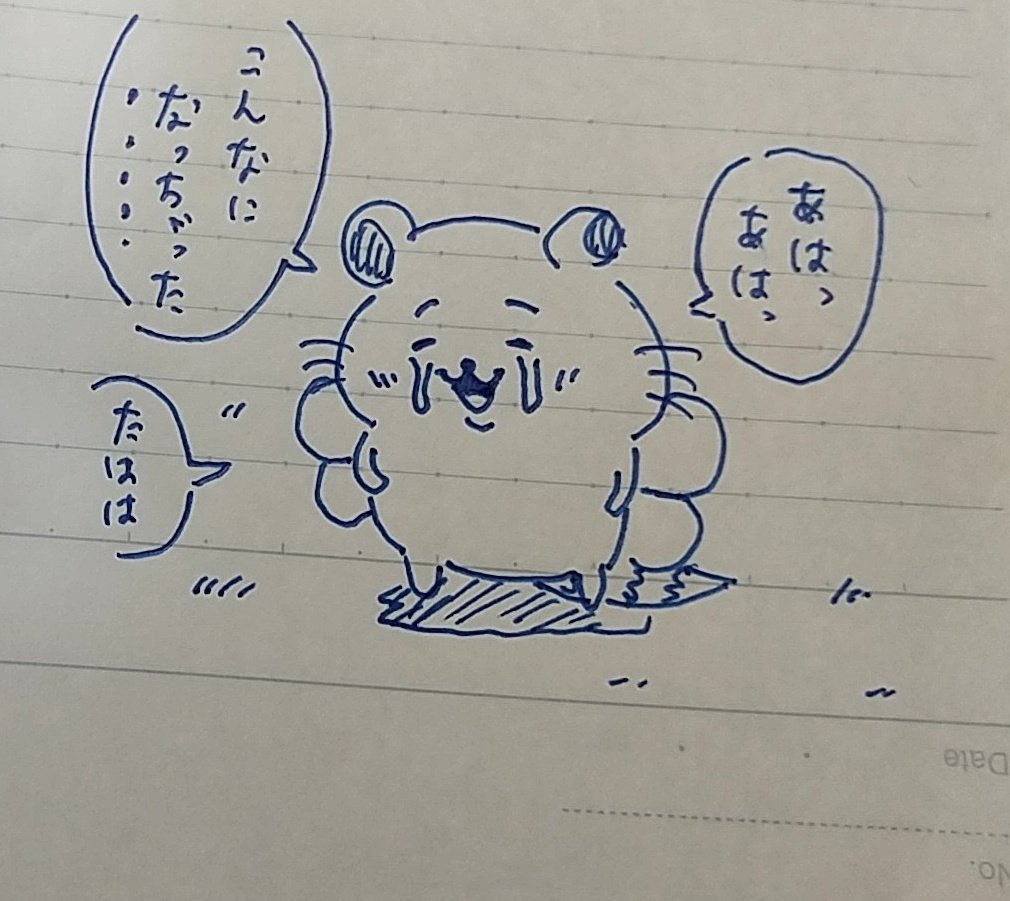 あはっ
あはっ
こんなに
なっちゃった
・・・・・
たはは
Date
No.